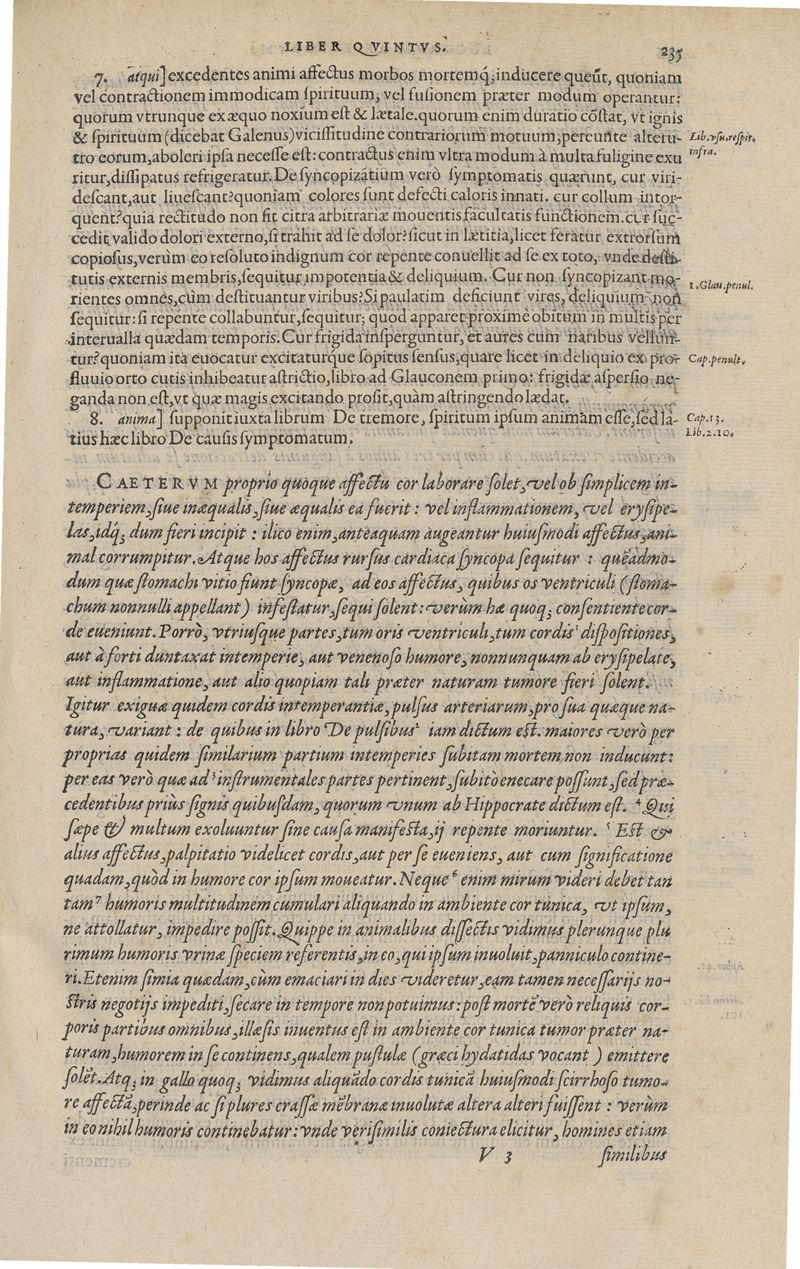 LIBER QVINTVS.
235
7. atqui] excedentes animi affectus morbos mortemq́; inducere queũt, quoniam
vel contractionem immodicam spirituum, vel fusionem præter modum operantur:
quorum vtrunque ex æquo noxium est & lætale. quorum enim duratio cõstat, vt ignis
& spirituum (dicebat Galenus) vicissitudine contrariorum motuum, pereunte alteru-
Lib. vsu. respir.
tro eorum, aboleri ipsa necesse est: contractus enim vltra modum à multa fuligine exu
infra.
ritur, dissipatus refrigeratur. De syncopizātium verò symptomatis quærunt, cur viri-
descant, aut liuescant? quoniam colores sunt defecti caloris innati. cur collum intor-
quent? quia rectitudo non fit citra arbitrariæ mouentis facultatis functionem. cur suc-
cedit valido dolori externo, si trahit ad se dolor? sicut in lætitia, licet feratur extrorsum
copiosus, verùm eo resoluto indignum cor repente conuellit ad se ex toto, vnde desti-
tutis externis membris, sequitur impotentia & deliquium. Cur non syncopizant mo-
1. Glau. penul.
rientes omnes, cùm destituantur viribus? Si paulatim deficiunt vires, deliquium non
sequitur: si repente collabuntur, sequitur, quod apparet proximè obitum in multis per
interualla quædam temporis. Cur frigida insperguntur, et aures cum naribus vellun-
tur? quoniam ita euocatur excitaturque sopitus sensus, quare licet in deliquio ex pro-
Cap. penult.
fluuio orto cutis inhibeatur astrictio, libro ad Glauconem primo: frigidæ aspersio ne-
ganda non est, vt quæ magis excitando prosit, quàm astringendo lædat.
8. anima] supponit iuxta librum De tremore, spiritum ipsum animam esse, sed la-
Cap. 13.
tius hæc libro De causis symptomatum.
Lib. 2. 10.
CAETERVM proprio quoque affectu cor laborare solet, vel ob simplicem in-
temperiem, siue inæqualis, siue æqualis ea fuerit: vel inflammationem, vel erysipe-
las, idq́; dum fieri incipit: ilico enim, anteaquam augeantur huiusmodi affectus, ani-
mal corrumpitur. Atque hos affectus rursus cardiaca syncopa sequitur: quēadmo-
dum quæ stomachi vitio fiunt syncopæ, ad eos affectus, quibus os ventriculi (stoma-
chum nonnulli appellant) infestatur, sequi solent: verùm hæ quoq; consentiente cor-
de eueniunt. Porrò, vtriusque partes, tum oris ventriculi, tum cordis¹ dispositiones,
aut à forti duntaxat intemperie, aut venenoso humore, nonnunquam ab erysipelate,
aut inflammatione, aut alio quopiam tali præter naturam tumore fieri solent.
Igitur exiguæ quidem cordis intemperantiæ, pulsus arteriarum, pro sua quæque na-
tura, variant: de quibus in libro De pulsibus² iam dictum est. maiores verò per
proprias quidem similarium partium intemperies subitam mortem non inducunt:
per eas verò quæ ad³ instrumentales partes pertinent, subitò enecare possunt, sed præ-
cedentibus priùs signis quibusdam, quorum vnum ab Hippocrate dictum est. ⁴ Qui
sæpe & multum exoluuntur sine causa manifesta, ij repente moriuntur. ⁵ Est &
alius affectus, palpitatio videlicet cordis, aut per se eueniens, aut cum significatione
quadam, quòd in humore cor ipsum moueatur. Neque⁶ enim mirum videri debet tan
tam⁷ humoris multitudinem cumulari aliquando in ambiente cor tunica, vt ipsum,
ne attollatur, impedire possit. Quippe in animalibus dissectis vidimus plerunque plu
rimum humoris vrinæ speciem referentis, in eo, qui ipsum inuoluit, panniculo contine-
ri. Etenim simia quædam, cùm emaciari in dies videretur, eam tamen necessarijs no-
stris negotijs impediti, secare in tempore non potuimus: post mortē verò reliquis cor-
poris partibus omnibus, illæsis inuentus est in ambiente cor tunica tumor præter na-
turam, humorem in se continens, qualem pustulæ (græci hydatidas vocant) emittere
solēt. Atq; in gallo quoq; vidimus aliquādo cordis tunicā huiusmodi scirrhoso tumo-
re affectā, perinde ac si plures crassæ mēbranæ inuolutæ altera alteri fuissent: verùm
in eo nihil humoris continebatur: vnde verisimilis coniectura elicitur, homines etiam
V 3
similibus